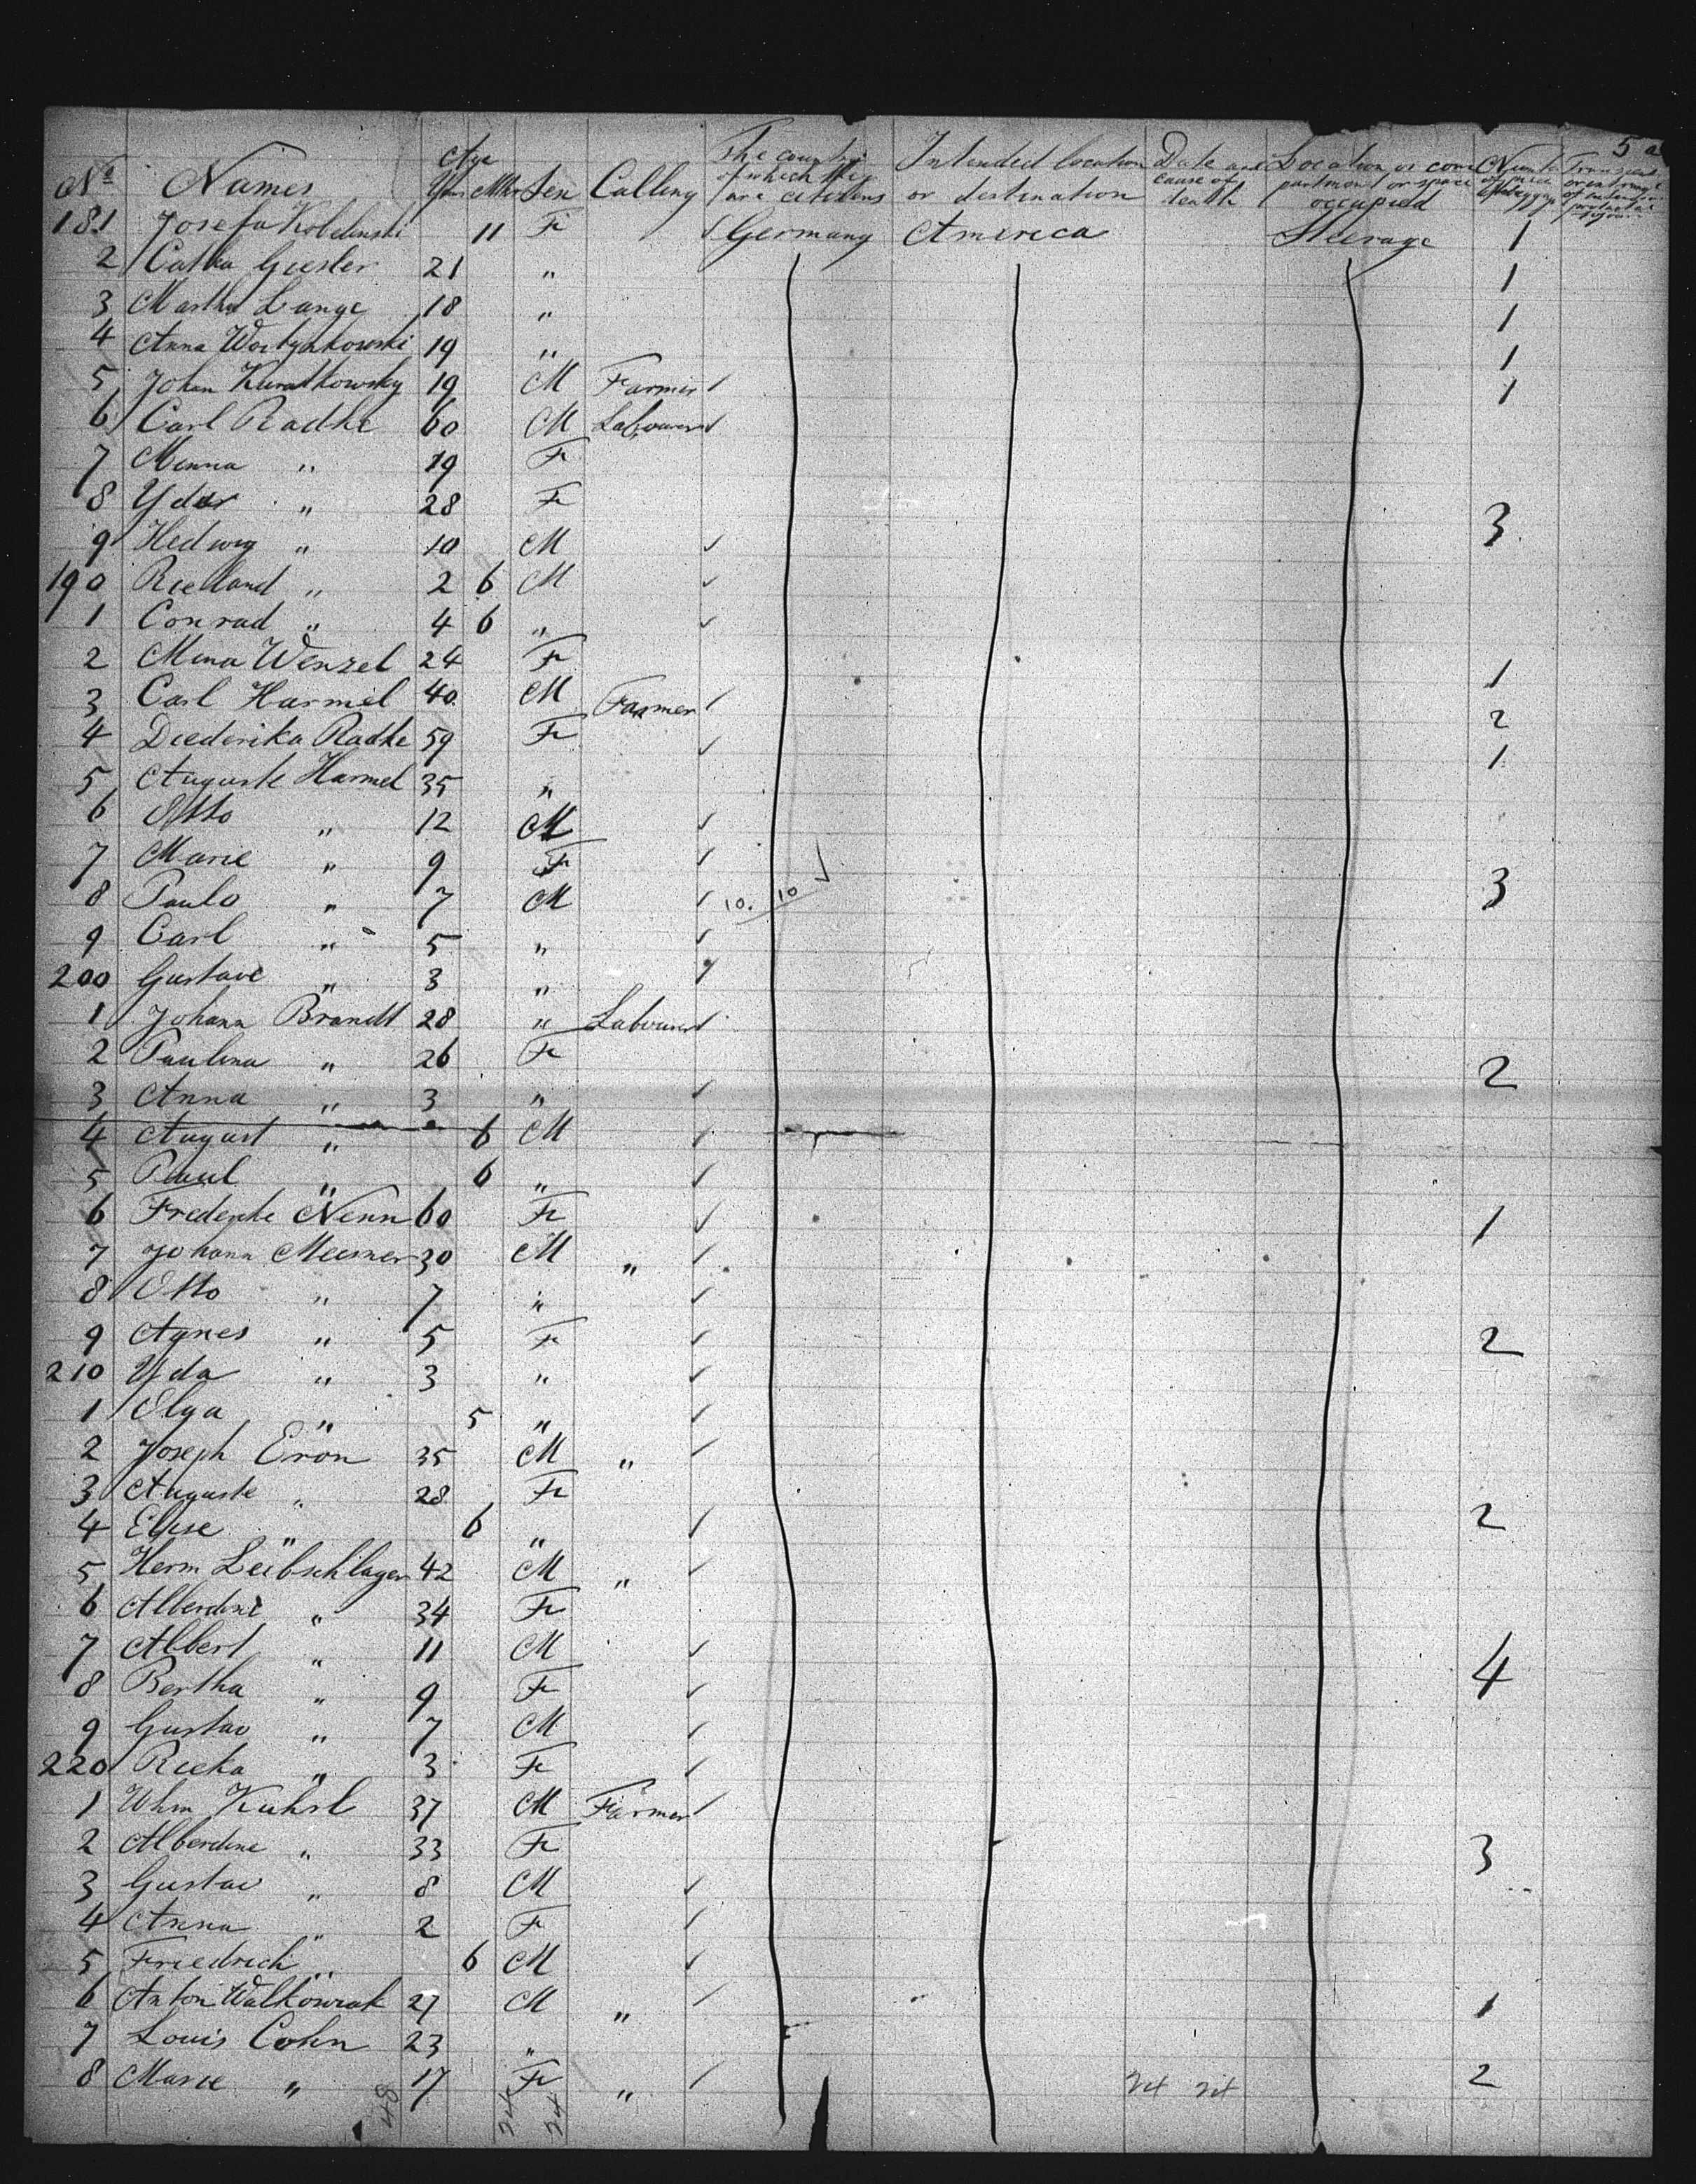 5 a
No Names Age Yrs Mths Sex Calling The country of which they are citizens Intended location or destination Date and cause of death Location or compartment or space occupied Number of pieces of baggage
181 Josefa Kobelinski 11 F Germany America Steerage 1
2 Catha Giesler 21 " 1
3 Martha Lange 18 " 1
4 Anna 19 " 1
5 Johan Kuratkowsky 19 M Farmer 1
6 Carl Radke 60 M Labourer
7 Minna " 19 F
8 Yda " 28 F 3
9 Hedwig " 10 M
190 " 2 6 M
1 Conrad " 4 6 "
2 Mina Wenzel 24 F 1
3 Carl Harmel 40 M Farmer 2
4 Diederika Radke 59 F 1
5 Auguste Harmel 35 "
6 Otto " 12 M
7 Marie " 9 F
8 Paulo " 7 M 10. 10 3
9 Carl " 5 "
200 Gustave " 3 "
1 Johann Brandt 28 " Labourer
2 Paulina " 26 F 2
3 Anna " 3 "
4 August " 6 M
5 Paul " 6 "
6 Frederike Nenn 60 F 1
7 Johann Meesmer 30 M "
8 Otto " 7 "
9 Agnes " 5 F 2
210 Yda " 3 "
1 Olga " 5 "
2 Joseph Eron 35 M "
3 Auguste " 28 F
4 Elise " 6 " 2
5 Herm Leibschlager 42 M "
6 Alberdine " 34 F
7 Albert " 11 M
8 Bertha " 9 F 4
9 Gustav " 7 M
220 Rieka " 3 F
1 Whm Kuhrl 37 M Farmer
2 Alberdine " 33 F 3
3 Gustav " 8 M
4 Anna " 2 F
5 Friedrich " 6 M
6 Anton Walkowiak 27 M " 1
7 Louis Cohn 23 "
8 Marie " 17 F " 2
48 24 24 24 24